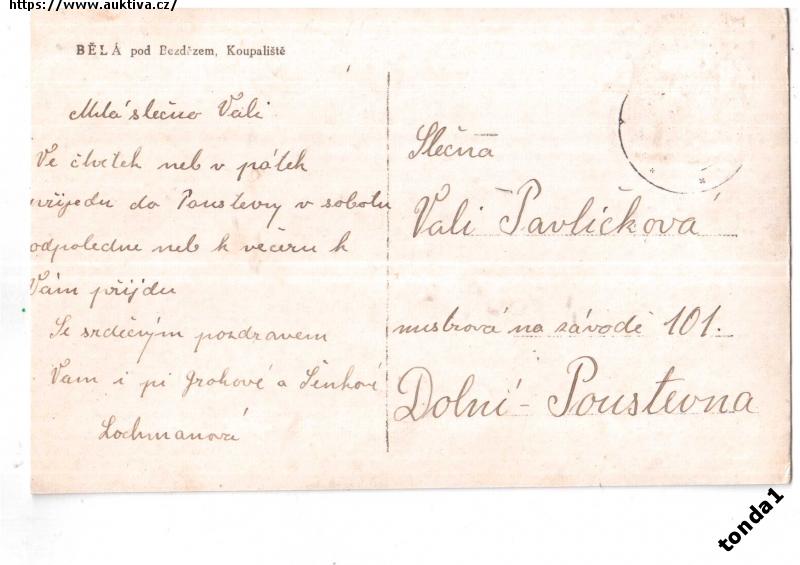 https://www.auktiva.cz/
BĚLÁ pod Bezdězem, Koupaliště
Milá slečno Vali
Ve čtvrtek neb v pátek
přijedu do Poustevny v sobotu
odpoledne neb k večeru k
Vám přijdu
Se srdečným pozdravem
Vam i pí Grohové a
Lochmanová
Slečna
Vali Pavlíčková
mistrová na závodě 101.
Dolní-Poustevna
tonda1